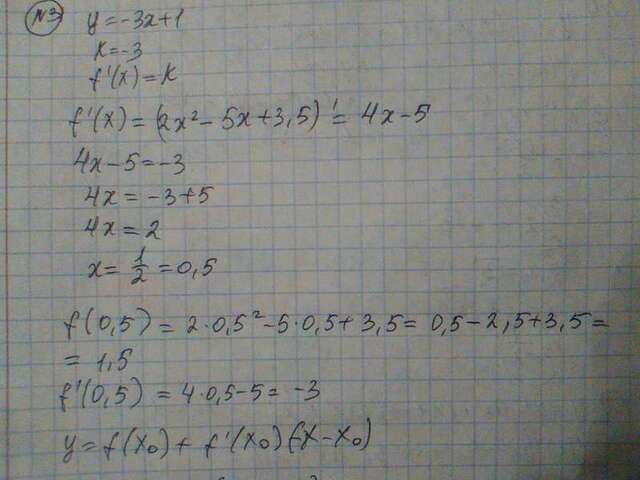 N3 y = -3x+1
k = -3
f'(x) = k
f'(x) = (2x² - 5x + 3,5)' = 4x - 5
4x - 5 = -3
4x = -3+5
4x = 2
x = 1/2 = 0,5
f(0,5) = 2·0,5² - 5·0,5 + 3,5 = 0,5 - 2,5 + 3,5 =
= 1,5
f'(0,5) = 4·0,5 - 5 = -3
y = f(x₀) + f'(x₀)(x - x₀)